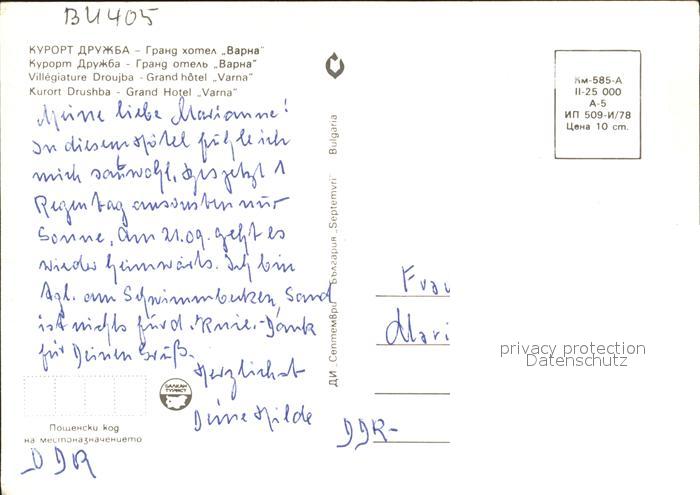 BU405
КУРОРТ ДРУЖБА – Гранд хотел „Варна"
Курорт Дружба - Гранд отель „Варна"
Villégiature Droujba - Grand hôtel „Varna"
Kurort Drushba - Grand Hotel „Varna"
Meine liebe Marianne!
In diesem Hotel fühle ich
mich sauwohl, bis jetzt 1
Regentag ansonsten nur
Sonne, am 21.09. geht es
wieder heimwärts. Ich bin
tgl. am Schwimmbecken, Sand
ist nichts für d. Knie.- Dank
für Deinen Gruß.
Herzlichst
Deine Hilde
БАЛКАН
ТУРИСТ
Пощенски код
на местоназначението
DDR
ДИ „Септември" България „Septemvri" Bulgaria
Км-585-А
II-25 000
А-5
ИП 509-И/78
Цена 10 ст.
Frau
Mari
privacy protection
Datenschutz
DDR-